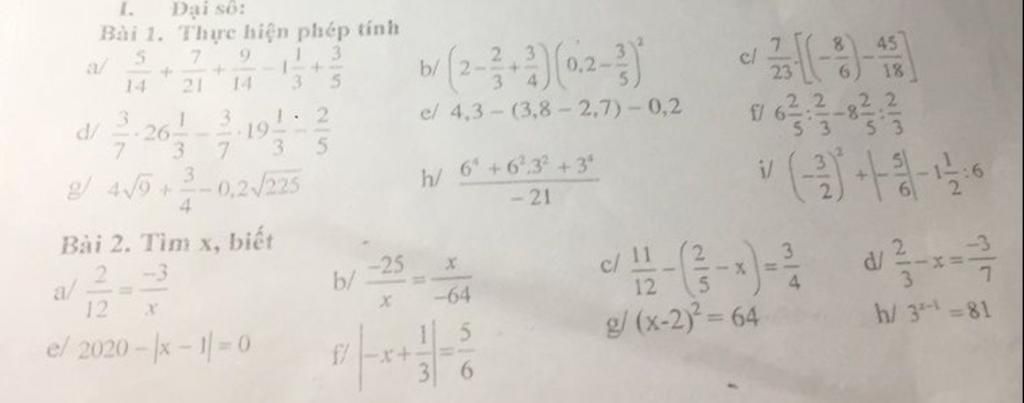 I. Đại số:
Bài 1. Thực hiện phép tính
a/ 5/14 + 7/21 + 9/14 − 1 1/3 + 3/5
b/ (2 − 2/3 + 3/4)(0,2 − 3/5)²
c/ 7/23.[(−8/6) − 45/18]
d/ 3/7 · 26 1/3 − 3/7 · 19 1/3 − 2/5
e/ 4,3 − (3,8 − 2,7) − 0,2
f/ 6 2/5 : 2/3 − 8 2/5 : 2/3
g/ 4√9 + 3/4 − 0,2√225
h/ (6⁴ + 6².3² + 3⁴)/(−21)
i/ (−3/2)² + |−5/6| − 1 1/2 : 6
Bài 2. Tìm x, biết
a/ 2/12 = −3/x
b/ −25/x = x/−64
c/ 11/12 − (2/5 − x) = 3/4
d/ 2/3 − x = −3/7
e/ 2020 − |x − 1| = 0
f/ |−x + 1/3| = 5/6
g/ (x-2)² = 64
h/ 3ˣ⁻¹ = 81